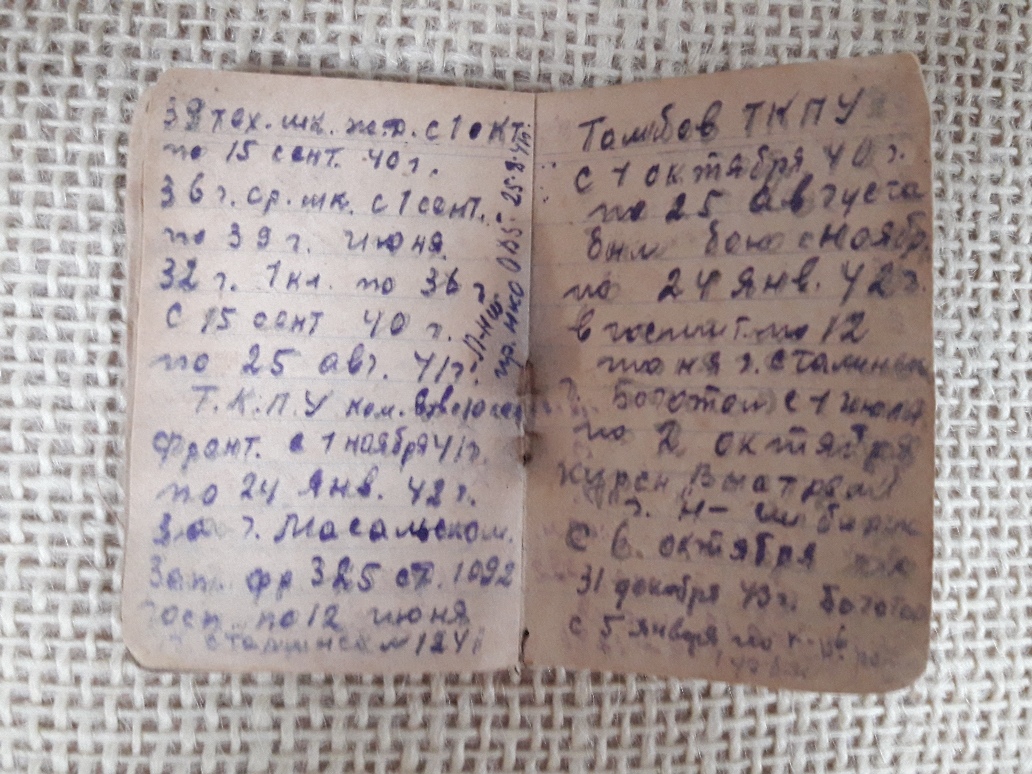 39 тех. шк. ж.д. с 1 окт.
по 15 сент. 40 г.
36 г. ср. шк. с 1 сент.
по 39 г. июня.
32 г. 1 кл. по 36 г.
с 15 сент 40 г.
по 25 авг. 41 г.
Т.К.П.У ком.
фронт. с 1 ноября 41 г.
по 24 янв. 42 г.
За г. Масальском.
Зап. фр 325 сд. 1092
Госп. по 12 июня
г. сталинск № 1241
пр. НКО 055. 25.8.41г.
Томбов ТКПУ
с 1 октября 40 г.
по 25 августа
был бою с ноябр.
по 24 янв. 42 г.
в госпит. по 12
июня г. сталинск
г. Боготол с 1 июля
по 2 октября
Курсы Выстрел
г. Н-сибирск
с 6. октября по
31 декабря 43 г. боготол
с 5 января по